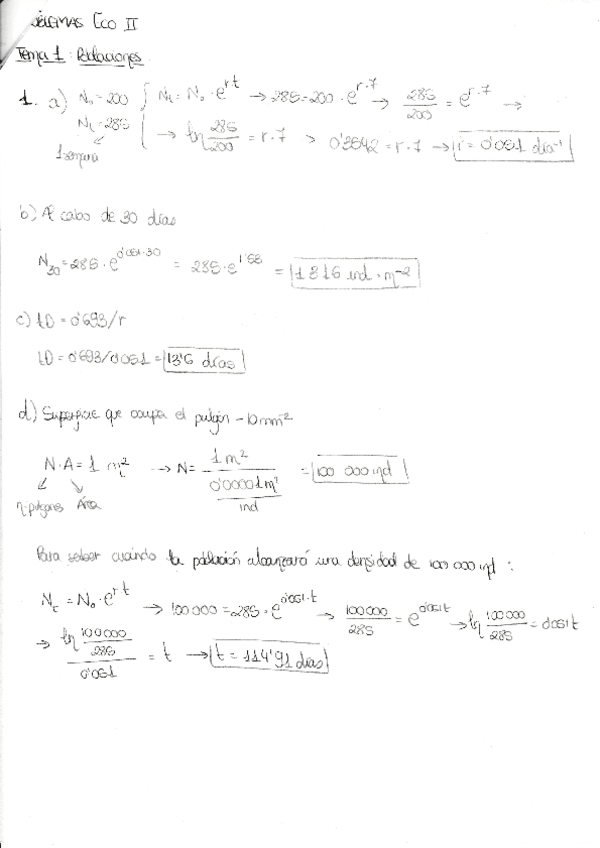 PROBLEMAS ECO II
Tema 1: Poblaciones.
1. a) N₀=200 Nₜ = N₀ · e^(r·t) → 285=200 · e^(r·7) → 285/200 = e^(r·7) →
Nₜ=285 → ln 285/200 = r·7 → 0'3542 = r·7 → r = 0'051 día⁻¹
1 semana
b) Al cabo de 30 días
N₃₀ = 285 · e^(0'051·30) = 285 · e^(1'53) = 1316 ind · m⁻²
c) tD = 0'693/r
tD = 0'693/0'051 = 13'6 días
d) Superficie que ocupa el pulgón - 10mm²
N·A = 1 m² → N = 1 m² / (0'00001 m²/ind) = 100 000 ind
nº pulgones Área
Para saber cuándo la población alcanzará una densidad de 100 000 ind :
Nₜ = N₀ · e^(r·t) → 100 000 = 285 · e^(0'051·t) → 100 000/285 = e^(0'051t) → ln 100 000/285 = 0'051t
→ (ln 100 000/285)/0'051 = t → t = 114'91 días